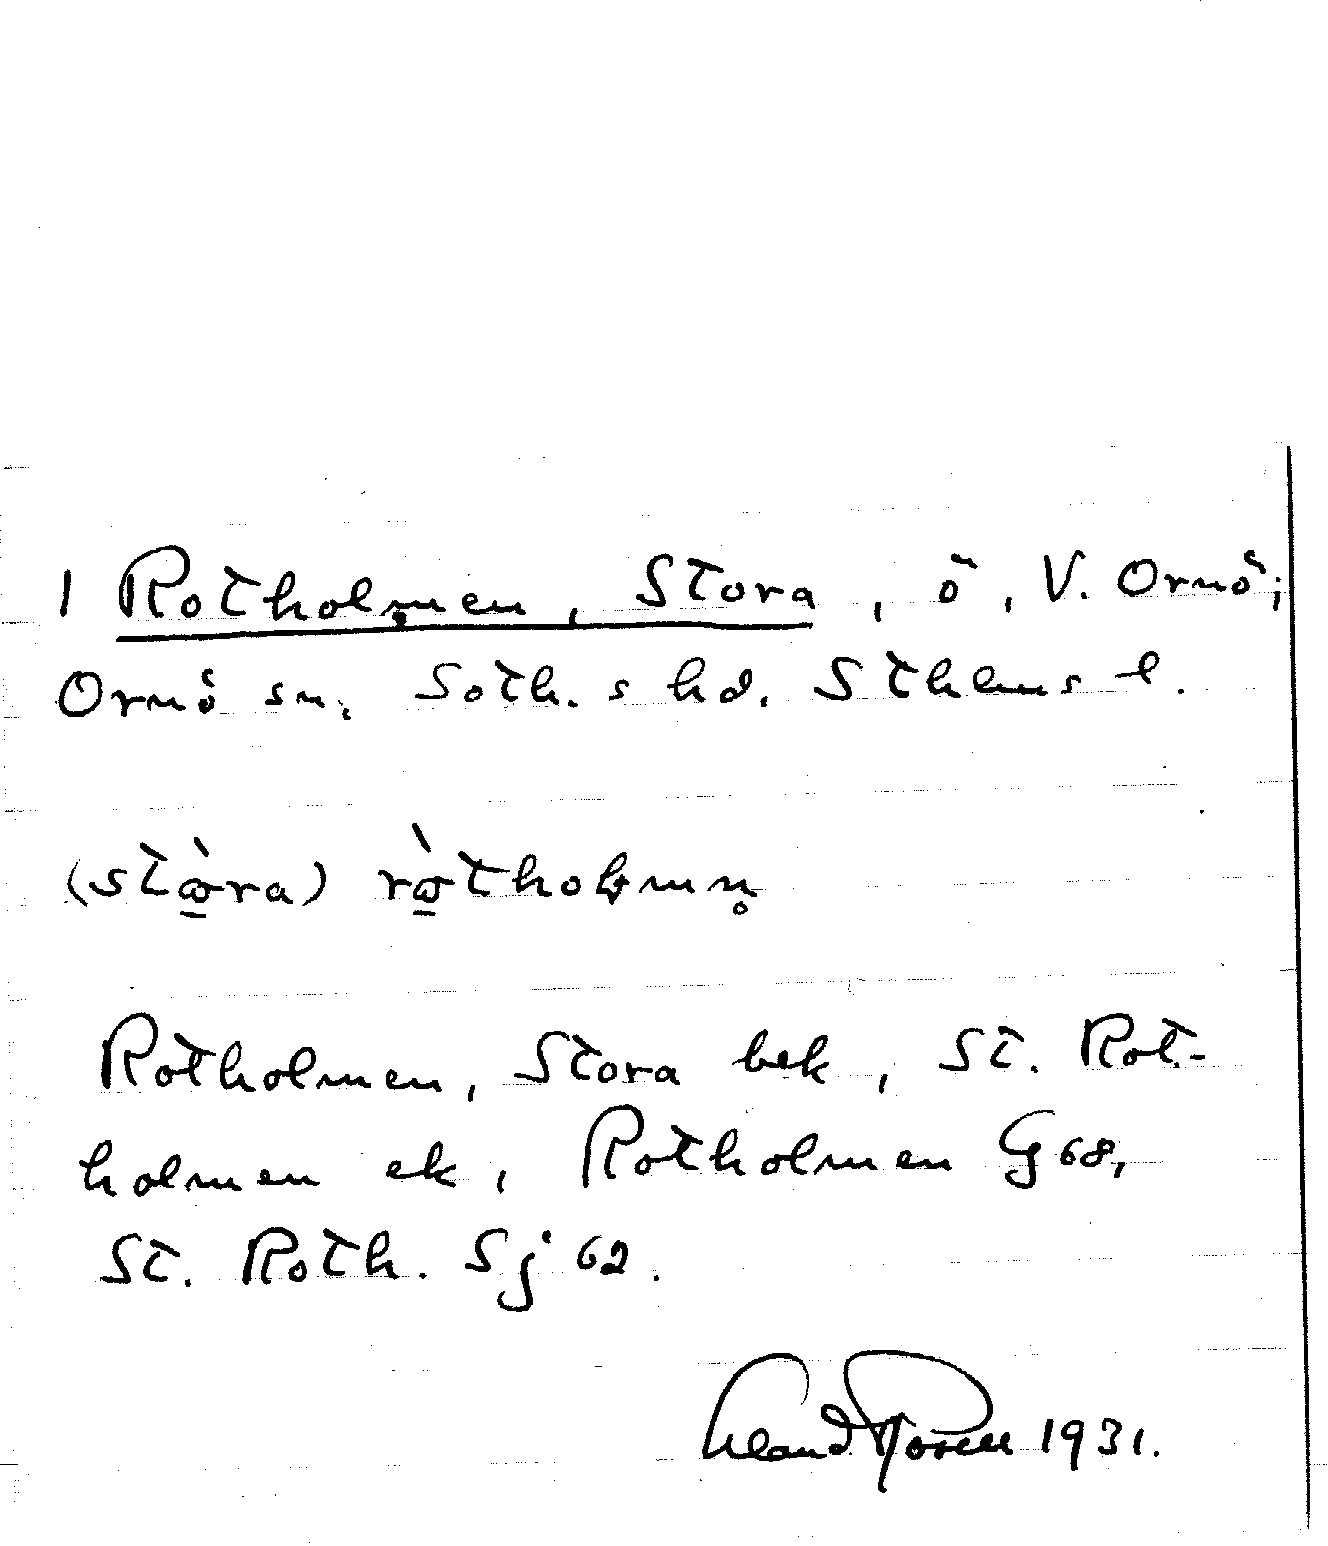 1 Rotholmen, Stora, ö, V. Ornö;
Ornö sn, Soth.s hd. Sthlms l.
(stòra) ròtholmn̥
Rotholmen, Stora bek, St. Rot-
holmen ek, Rotholmen G 68,
St. Roth. Sj 62.
1931.